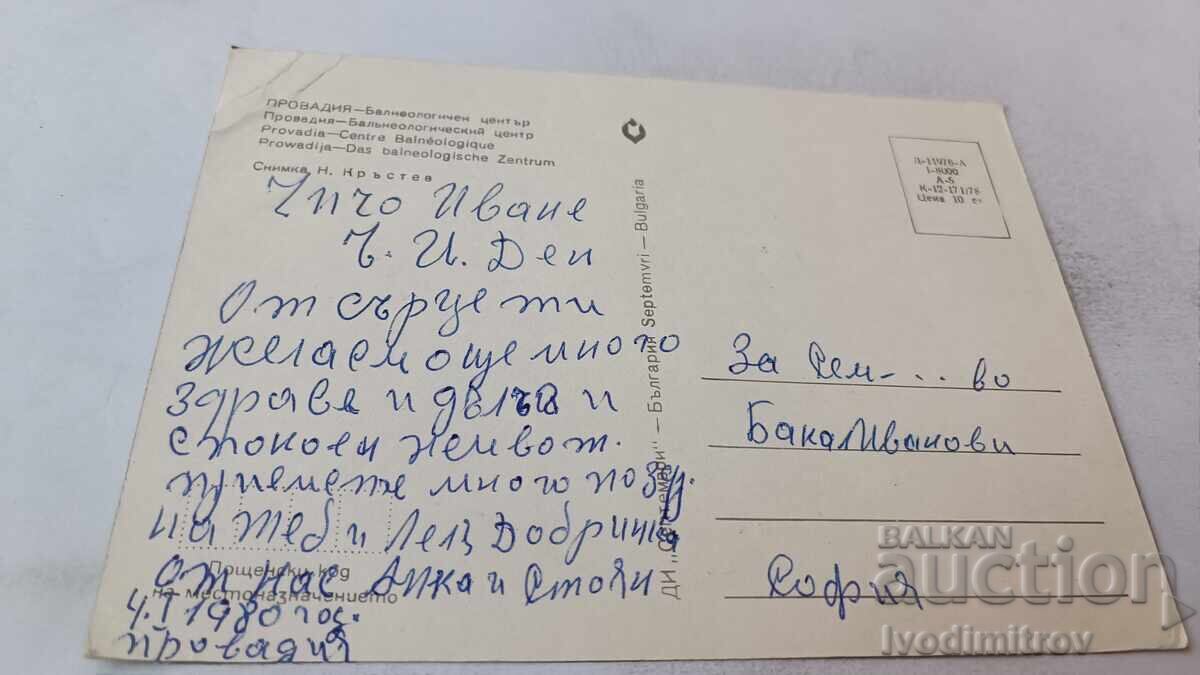 ПРОВАДИЯ—Балнеологичен център
Провадия—Бальнеологический центр
Provadia—Centre Balnéologique
Prowadija—Das balneologische Zentrum
Снимка Н. Кръстев
Чичо Иване
Ч. И. Ден
От сърце ти
желаем още много
здраве и дълъг и
спокоен живот.
приемете много позд.
на теб и Леля Добринка
от нас Анка и Стоян
4.I 1980 год.
Провадия
Пощенски код
на местоназначението
ДИ „Септември" — България Septemvri — Bulgaria
Д-11976-А
I-8000
А-5
К-12-171/78
Цена 10 ст
За Сем-...во
БакалИванови
София
BALKAN
auction
Ivodimitrov